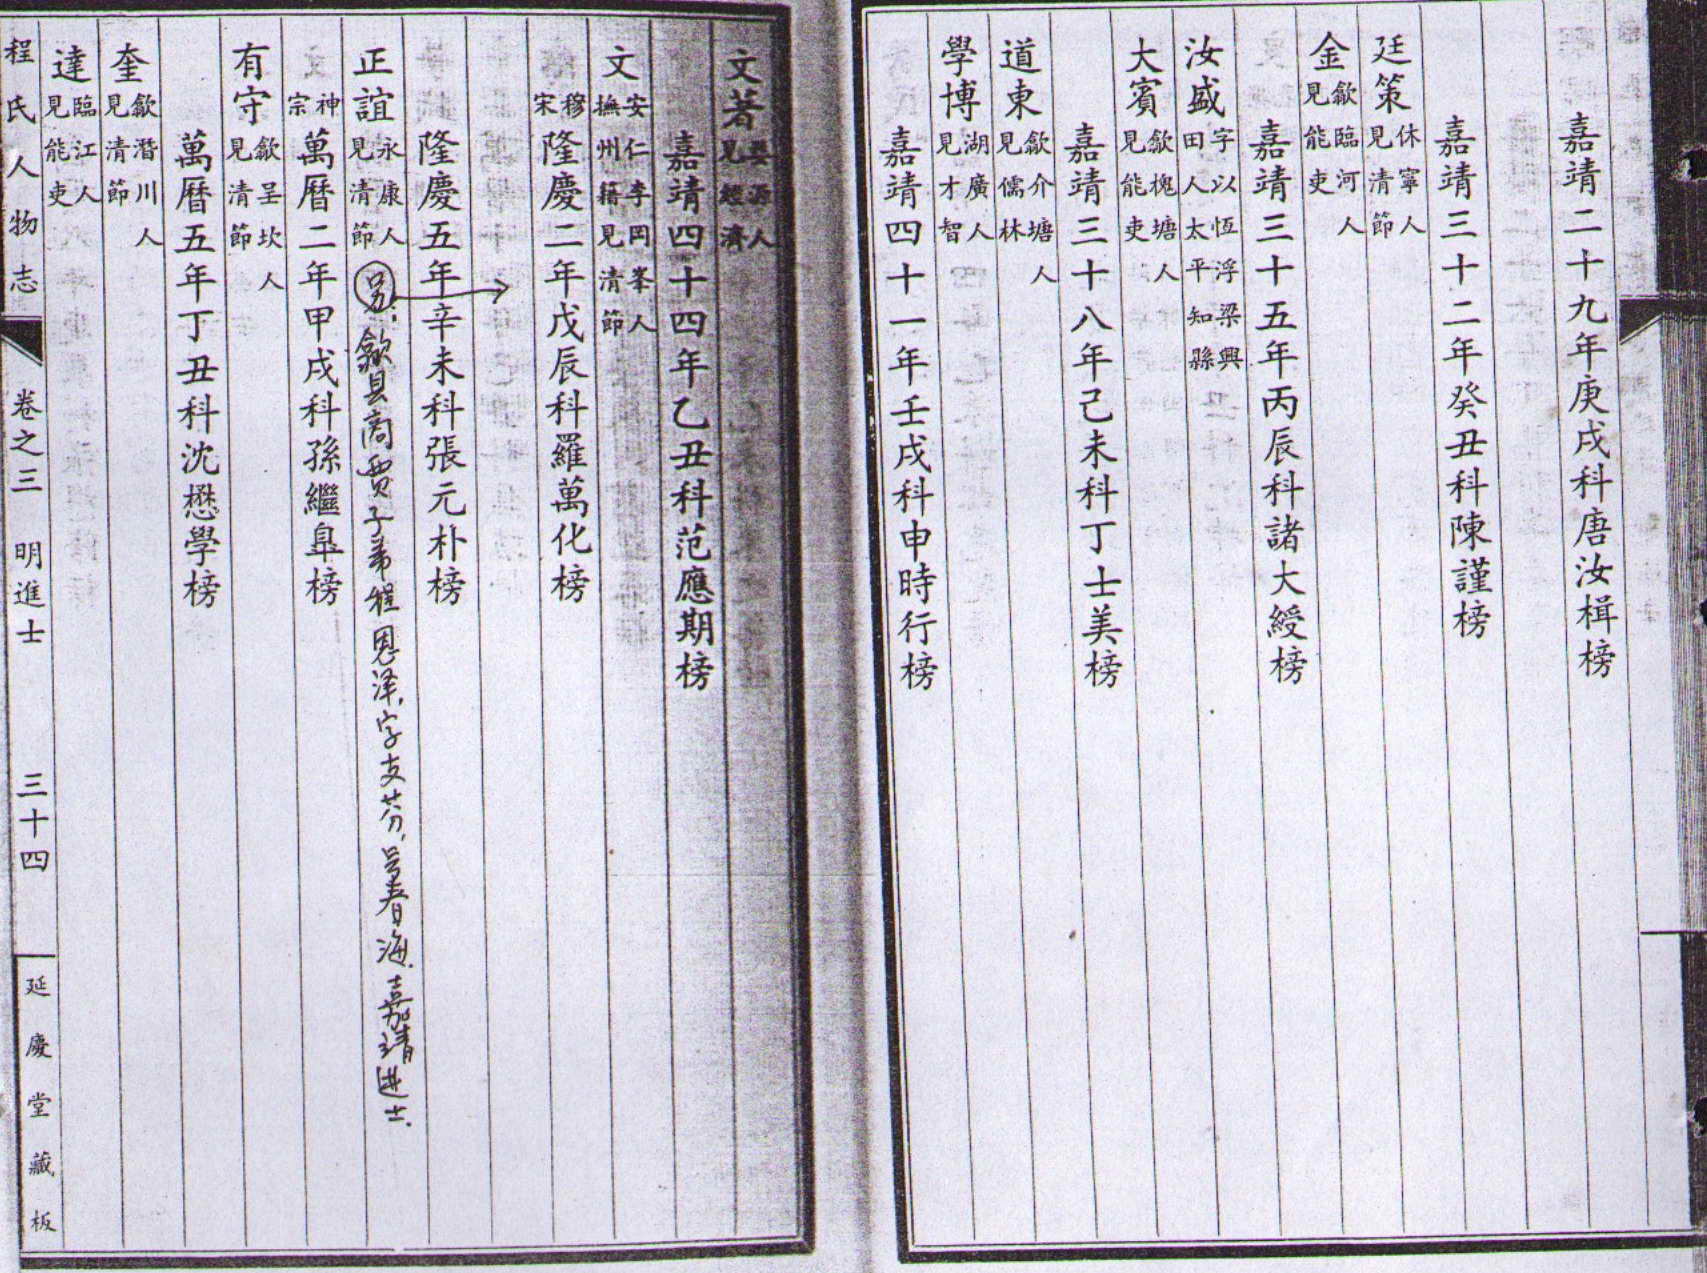 嘉靖二十九年庚戌科唐汝楫榜
嘉靖三十二年癸丑科陳謹榜
廷策 休寧人 見清節
金 歙臨河人 見能吏
嘉靖三十五年丙辰科諸大綬榜
汝盛 字以恆浮梁興 田人太平知縣
大賓 歙槐塘人 見能吏
嘉靖三十八年己未科丁士美榜
道東 歙介塘人 見儒林
學博 湖廣人 見才智
嘉靖四十一年壬戌科申時行榜
文著 婺源人 見經濟
嘉靖四十四年乙丑科范應期榜
文 安仁李岡峯人 撫州籍見清節
穆宗 隆慶二年戊辰科羅萬化榜
隆慶五年辛未科張元忭榜
正誼 永康人 見清節
另：歙县商贾子弟程恩泽，字支芬，号春海，嘉靖进士．
神宗 萬曆二年甲戌科孫繼臯榜
有守 歙呈坎人 見清節
萬曆五年丁丑科沈懋學榜
奎 歙潛川人 見清節
達 臨江人 見能吏
程氏人物志 卷之三 明進士 三十四 延慶堂藏板